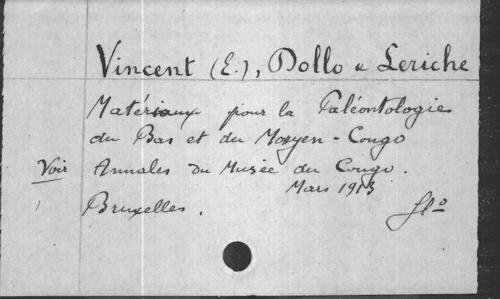 Vincent (E.), Dollo & Leriche
Matériaux pour la Paléontologie
du Bas et du Moyen-Congo
Voir Annales du Musée du Congo.
Mars 1913
Bruxelles. flo